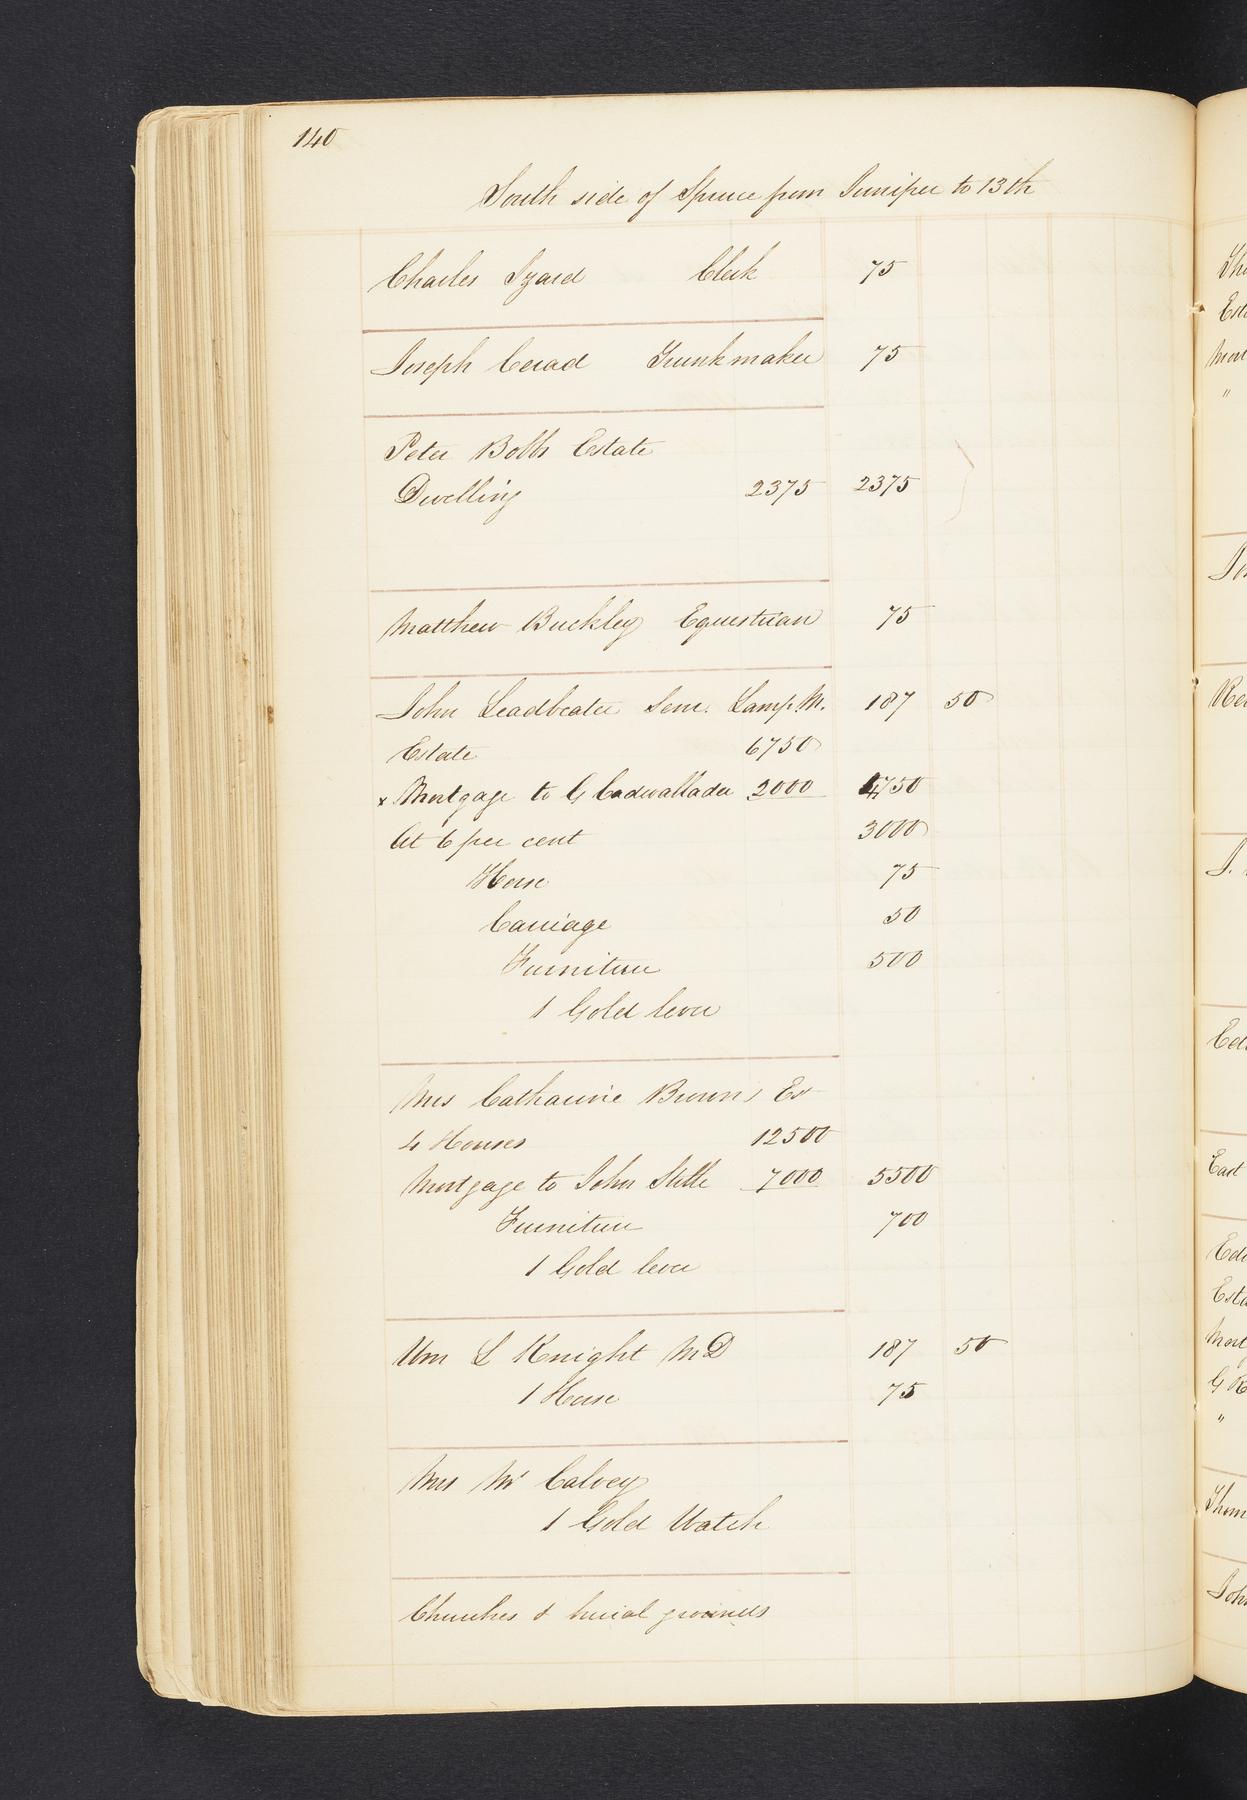 140
South side of Spruce from Juniper to 13th
Charles Izard Clerk 75
Joseph Cerad Trunkmaker 75
Peter Bobbs Estate
Dwelling 2375 2375
Matthew Buckley Equestrian 75
John Leadbeater Senr. Lamp M. 187 50
Estate 6750
x Mortgage to G Cadwallader 2000 4750
At 6 per cent 3000
Horse 75
Carriage 50
Furniture 500
1 Gold lever
Mrs Catharine Browns Est
4 Houses 12500
Mortgage to John Stille 7000 5500
Furniture 700
1 Gold lever
Wm L Knight MD 187 50
1 Horse 75
Mrs Mc Calvey
1 Gold Watch
Churches & burial grounds
Est
Mort
"
Est
Mort
"
Thom
John